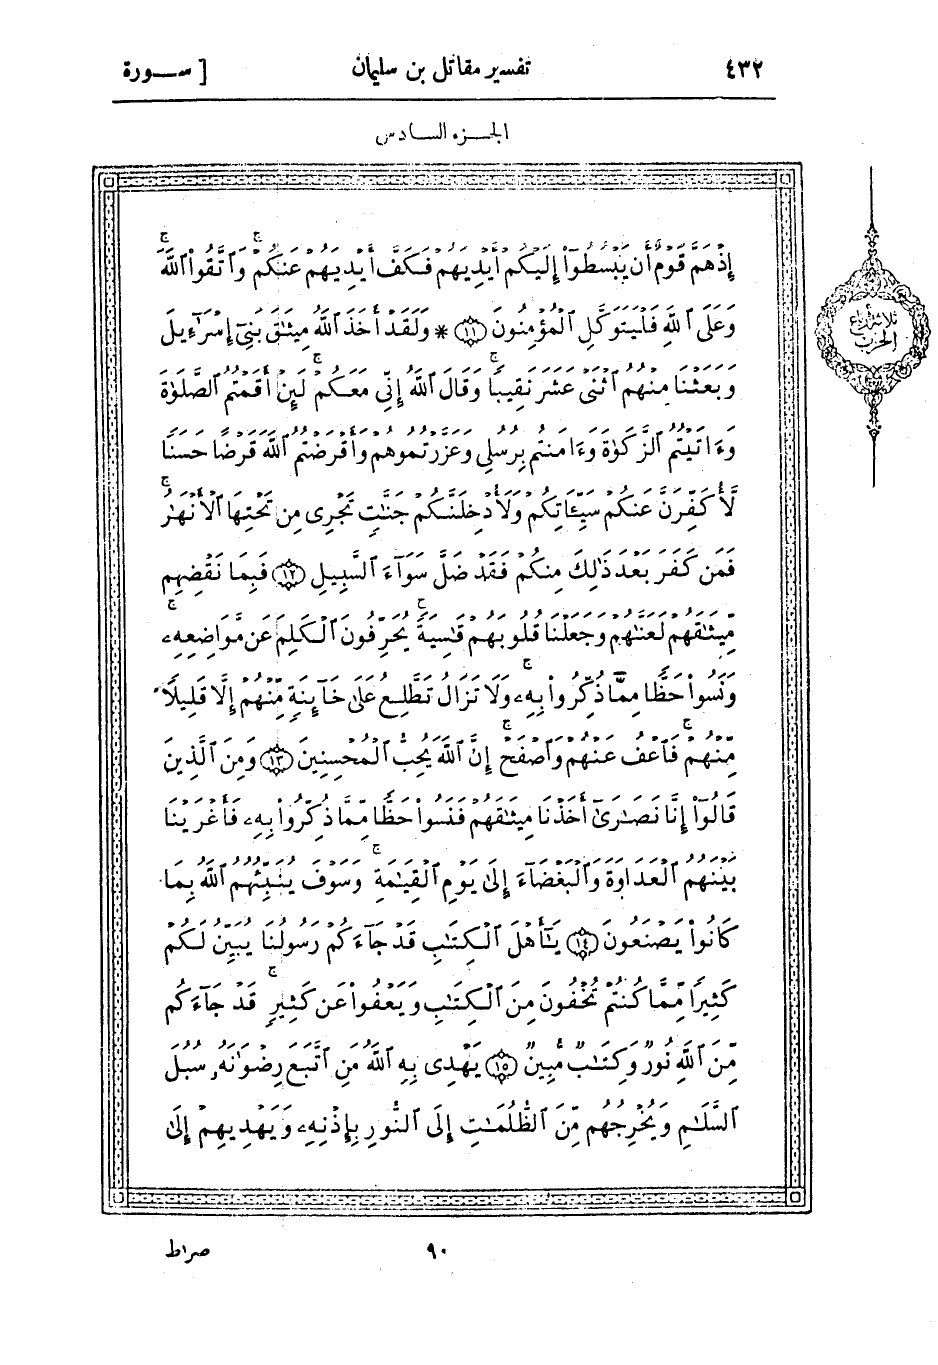 ٤٣٢
تفسير مقاتل بن سليمان
[ ســورة
الجزء السادس
إِذْ هَمَّ قَوْمٌ أَن يَبْسُطُوٓا۟ إِلَيْكُمْ أَيْدِيَهُمْ فَكَفَّ أَيْدِيَهُمْ عَنكُمْ ۖ وَٱتَّقُوا۟ ٱللَّهَ ۚ
وَعَلَى ٱللَّهِ فَلْيَتَوَكَّلِ ٱلْمُؤْمِنُونَ ﴿١١﴾ * وَلَقَدْ أَخَذَ ٱللَّهُ مِيثَٰقَ بَنِىٓ إِسْرَٰٓءِيلَ
وَبَعَثْنَا مِنْهُمُ ٱثْنَىْ عَشَرَ نَقِيبًا ۖ وَقَالَ ٱللَّهُ إِنِّى مَعَكُمْ ۖ لَئِنْ أَقَمْتُمُ ٱلصَّلَوٰةَ
وَءَاتَيْتُمُ ٱلزَّكَوٰةَ وَءَامَنتُم بِرُسُلِى وَعَزَّرْتُمُوهُمْ وَأَقْرَضْتُمُ ٱللَّهَ قَرْضًا حَسَنًا
لَّأُكَفِّرَنَّ عَنكُمْ سَيِّـَٔاتِكُمْ وَلَأُدْخِلَنَّكُمْ جَنَّٰتٍ تَجْرِى مِن تَحْتِهَا ٱلْأَنْهَٰرُ ۚ
فَمَن كَفَرَ بَعْدَ ذَٰلِكَ مِنكُمْ فَقَدْ ضَلَّ سَوَآءَ ٱلسَّبِيلِ ﴿١٢﴾ فَبِمَا نَقْضِهِم
مِّيثَٰقَهُمْ لَعَنَّٰهُمْ وَجَعَلْنَا قُلُوبَهُمْ قَٰسِيَةً ۖ يُحَرِّفُونَ ٱلْكَلِمَ عَن مَّوَاضِعِهِۦ ۙ
وَنَسُوا۟ حَظًّا مِّمَّا ذُكِّرُوا۟ بِهِۦ ۚ وَلَا تَزَالُ تَطَّلِعُ عَلَىٰ خَآئِنَةٍ مِّنْهُمْ إِلَّا قَلِيلًا
مِّنْهُمْ ۖ فَٱعْفُ عَنْهُمْ وَٱصْفَحْ ۚ إِنَّ ٱللَّهَ يُحِبُّ ٱلْمُحْسِنِينَ ﴿١٣﴾ وَمِنَ ٱلَّذِينَ
قَالُوٓا۟ إِنَّا نَصَٰرَىٰٓ أَخَذْنَا مِيثَٰقَهُمْ فَنَسُوا۟ حَظًّا مِّمَّا ذُكِّرُوا۟ بِهِۦ فَأَغْرَيْنَا
بَيْنَهُمُ ٱلْعَدَاوَةَ وَٱلْبَغْضَآءَ إِلَىٰ يَوْمِ ٱلْقِيَٰمَةِ ۚ وَسَوْفَ يُنَبِّئُهُمُ ٱللَّهُ بِمَا
كَانُوا۟ يَصْنَعُونَ ﴿١٤﴾ يَٰٓأَهْلَ ٱلْكِتَٰبِ قَدْ جَآءَكُمْ رَسُولُنَا يُبَيِّنُ لَكُمْ
كَثِيرًا مِّمَّا كُنتُمْ تُخْفُونَ مِنَ ٱلْكِتَٰبِ وَيَعْفُوا۟ عَن كَثِيرٍ ۚ قَدْ جَآءَكُم
مِّنَ ٱللَّهِ نُورٌ وَكِتَٰبٌ مُّبِينٌ ﴿١٥﴾ يَهْدِى بِهِ ٱللَّهُ مَنِ ٱتَّبَعَ رِضْوَٰنَهُۥ سُبُلَ
ٱلسَّلَٰمِ وَيُخْرِجُهُم مِّنَ ٱلظُّلُمَٰتِ إِلَى ٱلنُّورِ بِإِذْنِهِۦ وَيَهْدِيهِمْ إِلَىٰ
ثلاثة أرباع
الحزب
٩٠
صراط